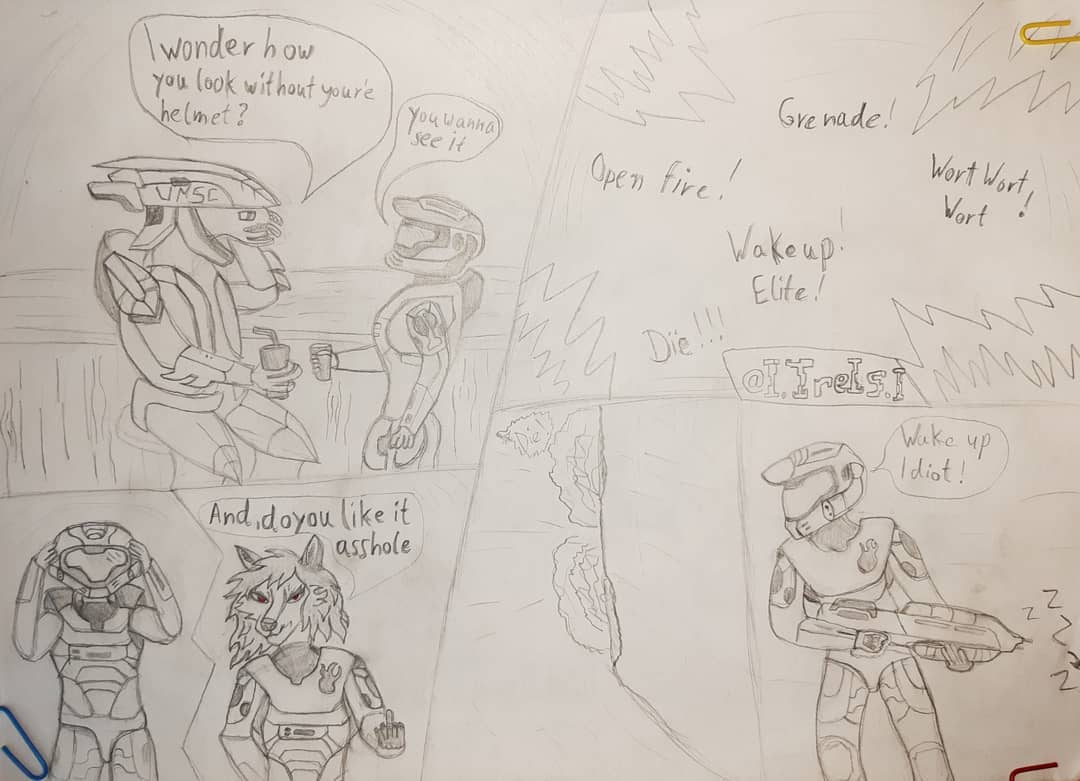 I wonder how
you look without your'e
helmet?
you wanna
see it
UNSC
And, do you like it
asshole
Grenade!
Open fire!
Wort Wort,
Wort !
Wake up!
Elite!
Dïe!!!
@I.IreIs.I
Wake up
Idiot!
z Z
z
z
z Z